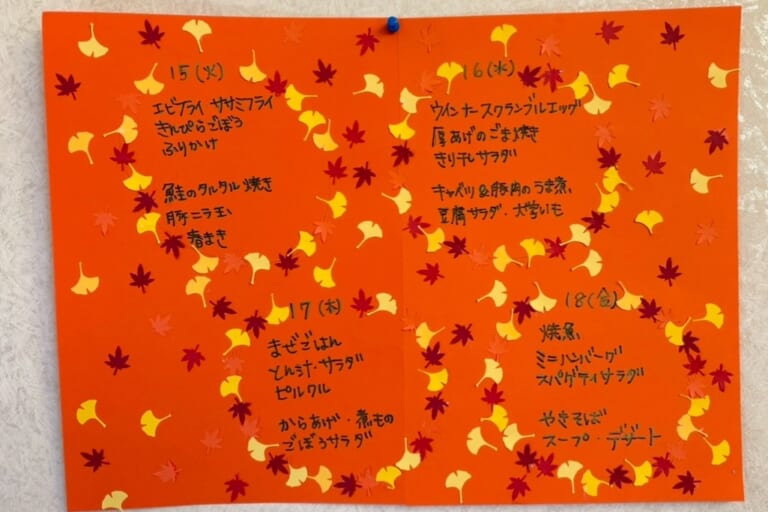 15(火)
エビフライ ササミフライ
きんぴらごぼう
ふりかけ
鮭のタルタル焼き
豚ニラ玉
春まき
16(水)
ウインナースクランブルエッグ
厚あげのごま焼き
きり干しサラダ
キャベツ&豚肉のうま煮
豆腐サラダ・大学いも
17(木)
まぜごはん
とん汁・サラダ
ピルクル
からあげ・煮もの
ごぼうサラダ
18(金)
焼魚
ミニハンバーグ
スパゲティサラダ
やきそば
スープ・デザート